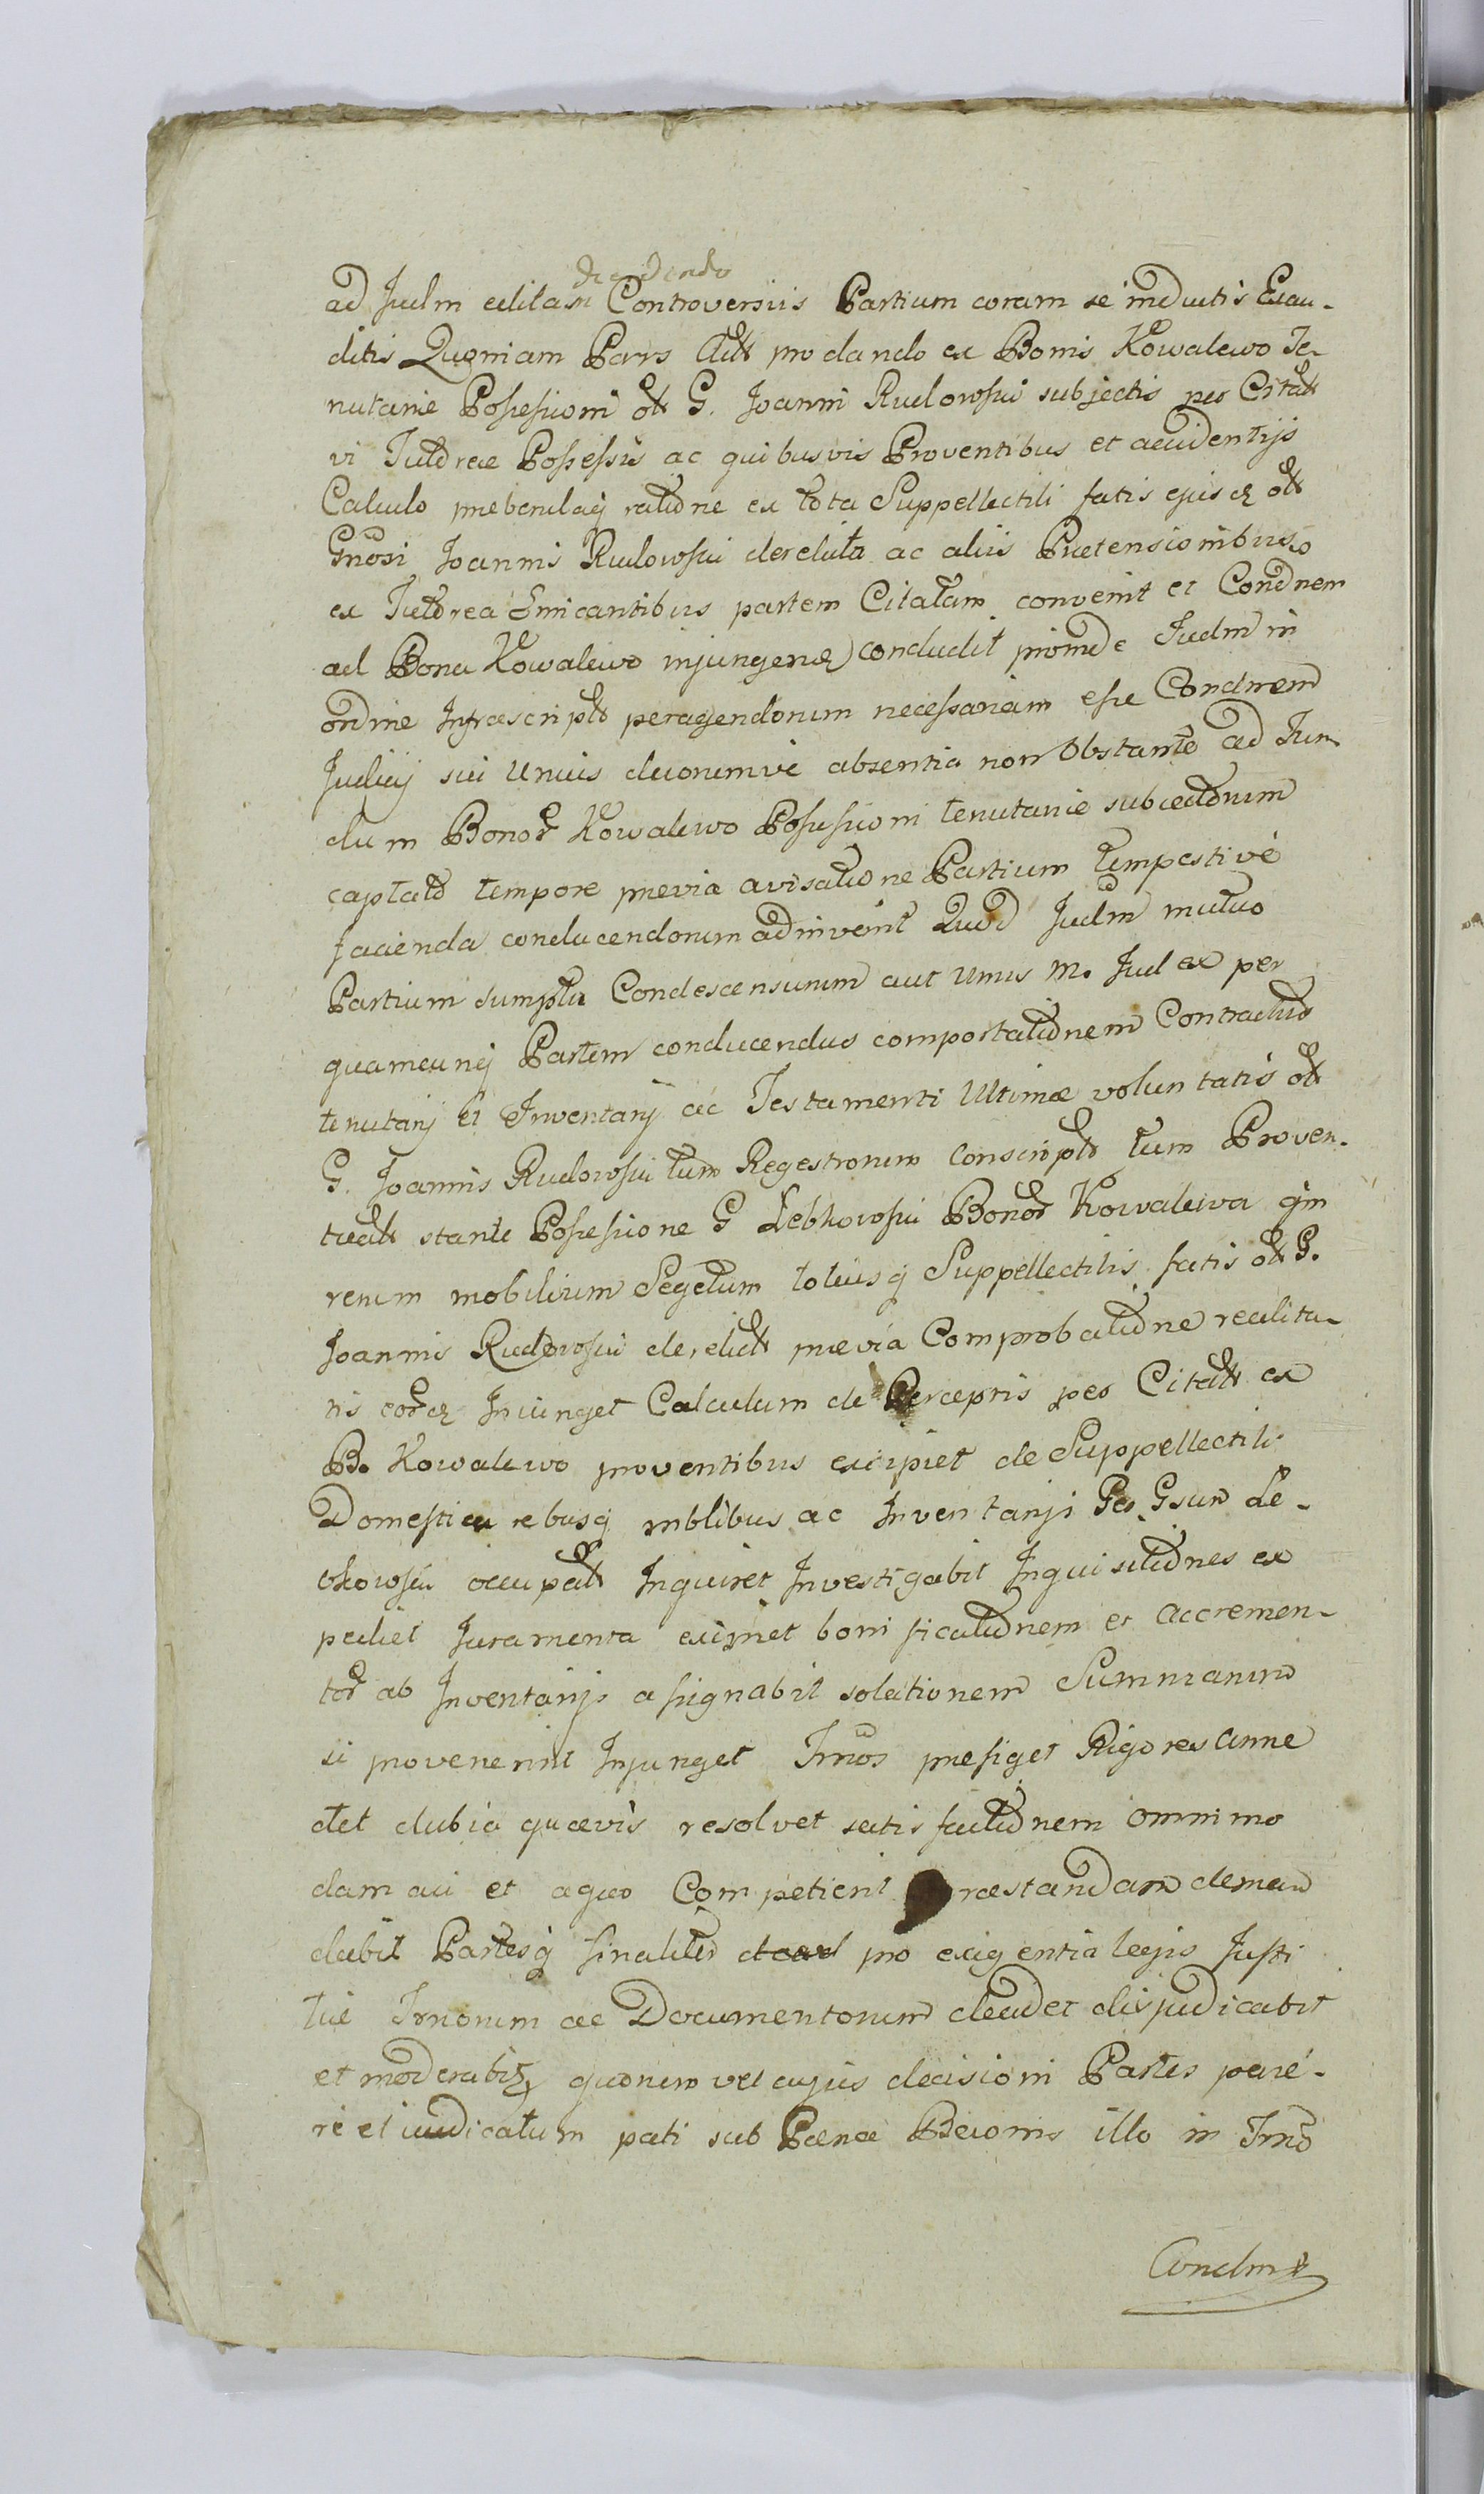 decidendo
ad Judm editas Controversiis Partium coram se inductis Exau-
ditis Quoniam Pars Act pro dando ex Bonis Kowalewo Te-
nutariæ Possessioni olt G. Joanni Rudowski subjectis per Citat
vi Possessis ac quibusvis Proventibus et accidentijs
Calculo præbendaq ratione ex tota Suppellectili fatis ejusd olt
Gnosi Joannis Rudowski derelicta ac aliis Prætensionibus
ex Emicantibus partem Citatam convenit et Condnem
ad Bona Kowalewo injungend concludit proinde Judm in
ordine Infrascript peragendorum necessariam esse Condnem
Judicij sui unius duorumve absentia non Obstante ad Fun-
dum Bonor Kowalewo Possessioni tenutariæ subiectorum
captato tempore prævia avisatione Partium tempestivè
facienda conducendorum adinvenit Quod Judm mutuo
Partium sumptu Condescensurum aut unus M. Judex per
quamcunq Partem conducendus comportationem Contractus
tenutarij et Inventarij ac Testamenti Ultimæ voluntatis olt
G. Joannis Rudowski tum Regestrorum conscript tum Proven-
tuat stante Possessione G Lebkowski Bonor Kowalewa qm
rerum mobilium Segetum totiusq Suppellectilis fatis olt G.
Joannis Rudowski derelict prævia Comprobatione realita-
tis eord Iniunget Calculum de Perceptis per Citat ex
B. Kowalewo proventibus excipiet de Suppellectili
Domestica rebusq mblibus ac Inventarijs Per Gsum Le-
bkowski occupat Inquiret Investigabit Inquisitiones ex
pediet Juramenta eximet bonificationem et accremen-
tor ab Inventarijs assignabit solutionem Summarum
si provenerint Injunget Tmos præfiget Rigores anne
ctet dubia quævis resolvet satisfactionem omnimo
dam cui et a quo Competierit præstandam deman
dabit Partesq finaliter pro exigentia legis Justi
tiæ Tmorum ac Documentorum decidet disjudicabit
et moderabit quorum vel cujus decisioni Partes pare-
re et iudicatum pati sub Pæna Bænnis illo in Tmo
Condm